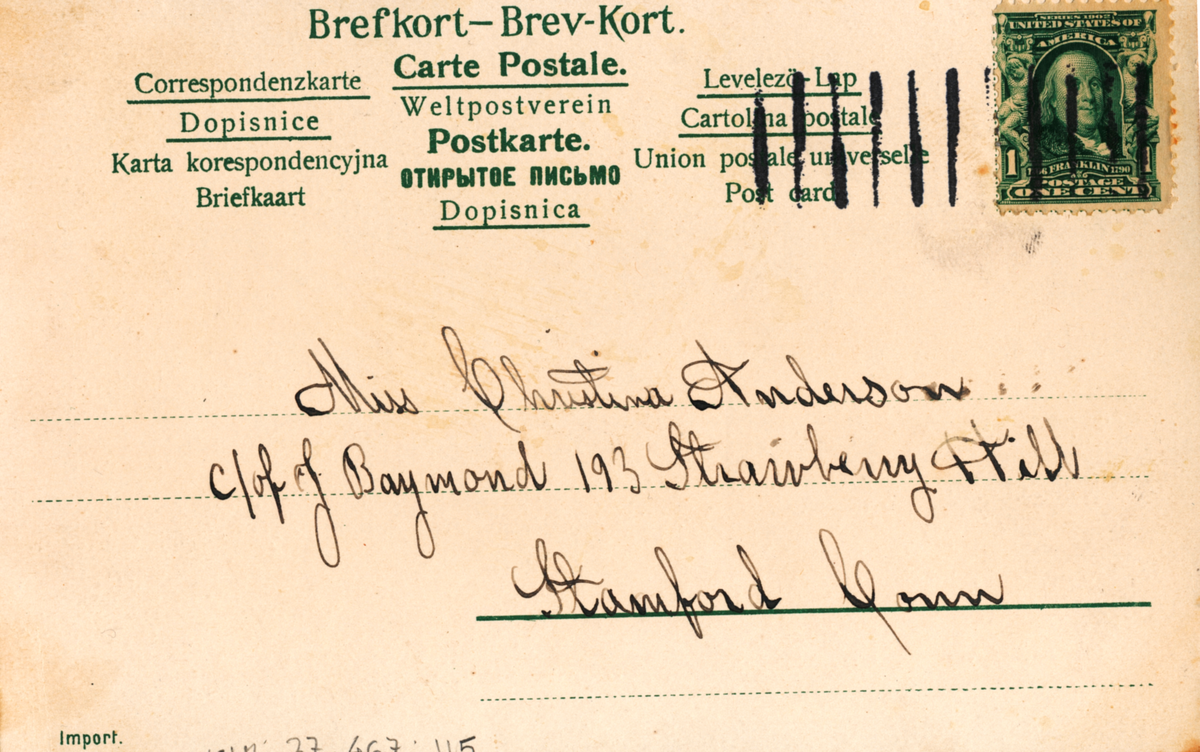 Brefkort—Brev-Kort.
Carte Postale.
Correspondenzkarte
Dopisnice
Karta korespondencyjna
Briefkaart
Weltpostverein
Postkarte.
ОТКРЫТОЕ ПИСЬМО
Dopisnica
Levelező-Lap
Cartolina postale
Union postale universelle
Post card
SERIES 1902
UNITED STATES OF
AMERICA
1 1
1706 FRANKLIN 1790
POSTAGE
ONE CENT
Miss Christina Anderson
c/of J Baymond 193 Strawberry Hill
Stamford Conn
Import.
27. 467. 115